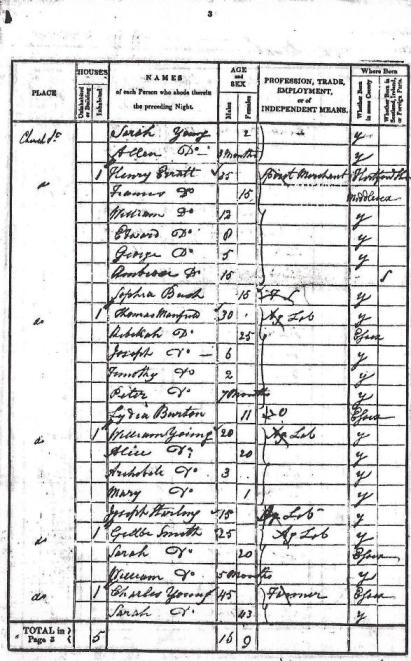 3
PLACE HOUSES Uninhabited or Building Inhabited NAMES of each Person who abode therein the preceding Night. AGE and SEX Males Females PROFESSION, TRADE, EMPLOYMENT, or of INDEPENDENT MEANS. Where Born Whether Born in same County Whether Born in Scotland, Ireland, or Foreign Parts
Church St Sarah Young 2 y
Allen Do 3 Months y
do 1 Henry 35 Merchant
Frances Do 15 Middlesex
William Do 12 y
Edward Do 8 y
George Do 5 y
Do 15 S
Sophia Bush 15 F.S. y
do 1 Thomas 30 Ag Lab y
Rebekah Do 25 Essex
Joseph Do 6 y
Timothy Do 2 y
Peter Do 7 Months y
Lydia Burton 11 Essex
do 1 William Young 20 Ag Lab y
Alice Do 20 y
Do 3 y
Mary Do 1 y
Joseph 15 Ag Lab y
do 1 Smith 25 Ag Lab y
Sarah Do 20 Essex
William Do 5 Months y
do 1 Charles Young 45 Farmer Essex
Sarah Do 43 y
TOTAL in Page 3 5 16 9